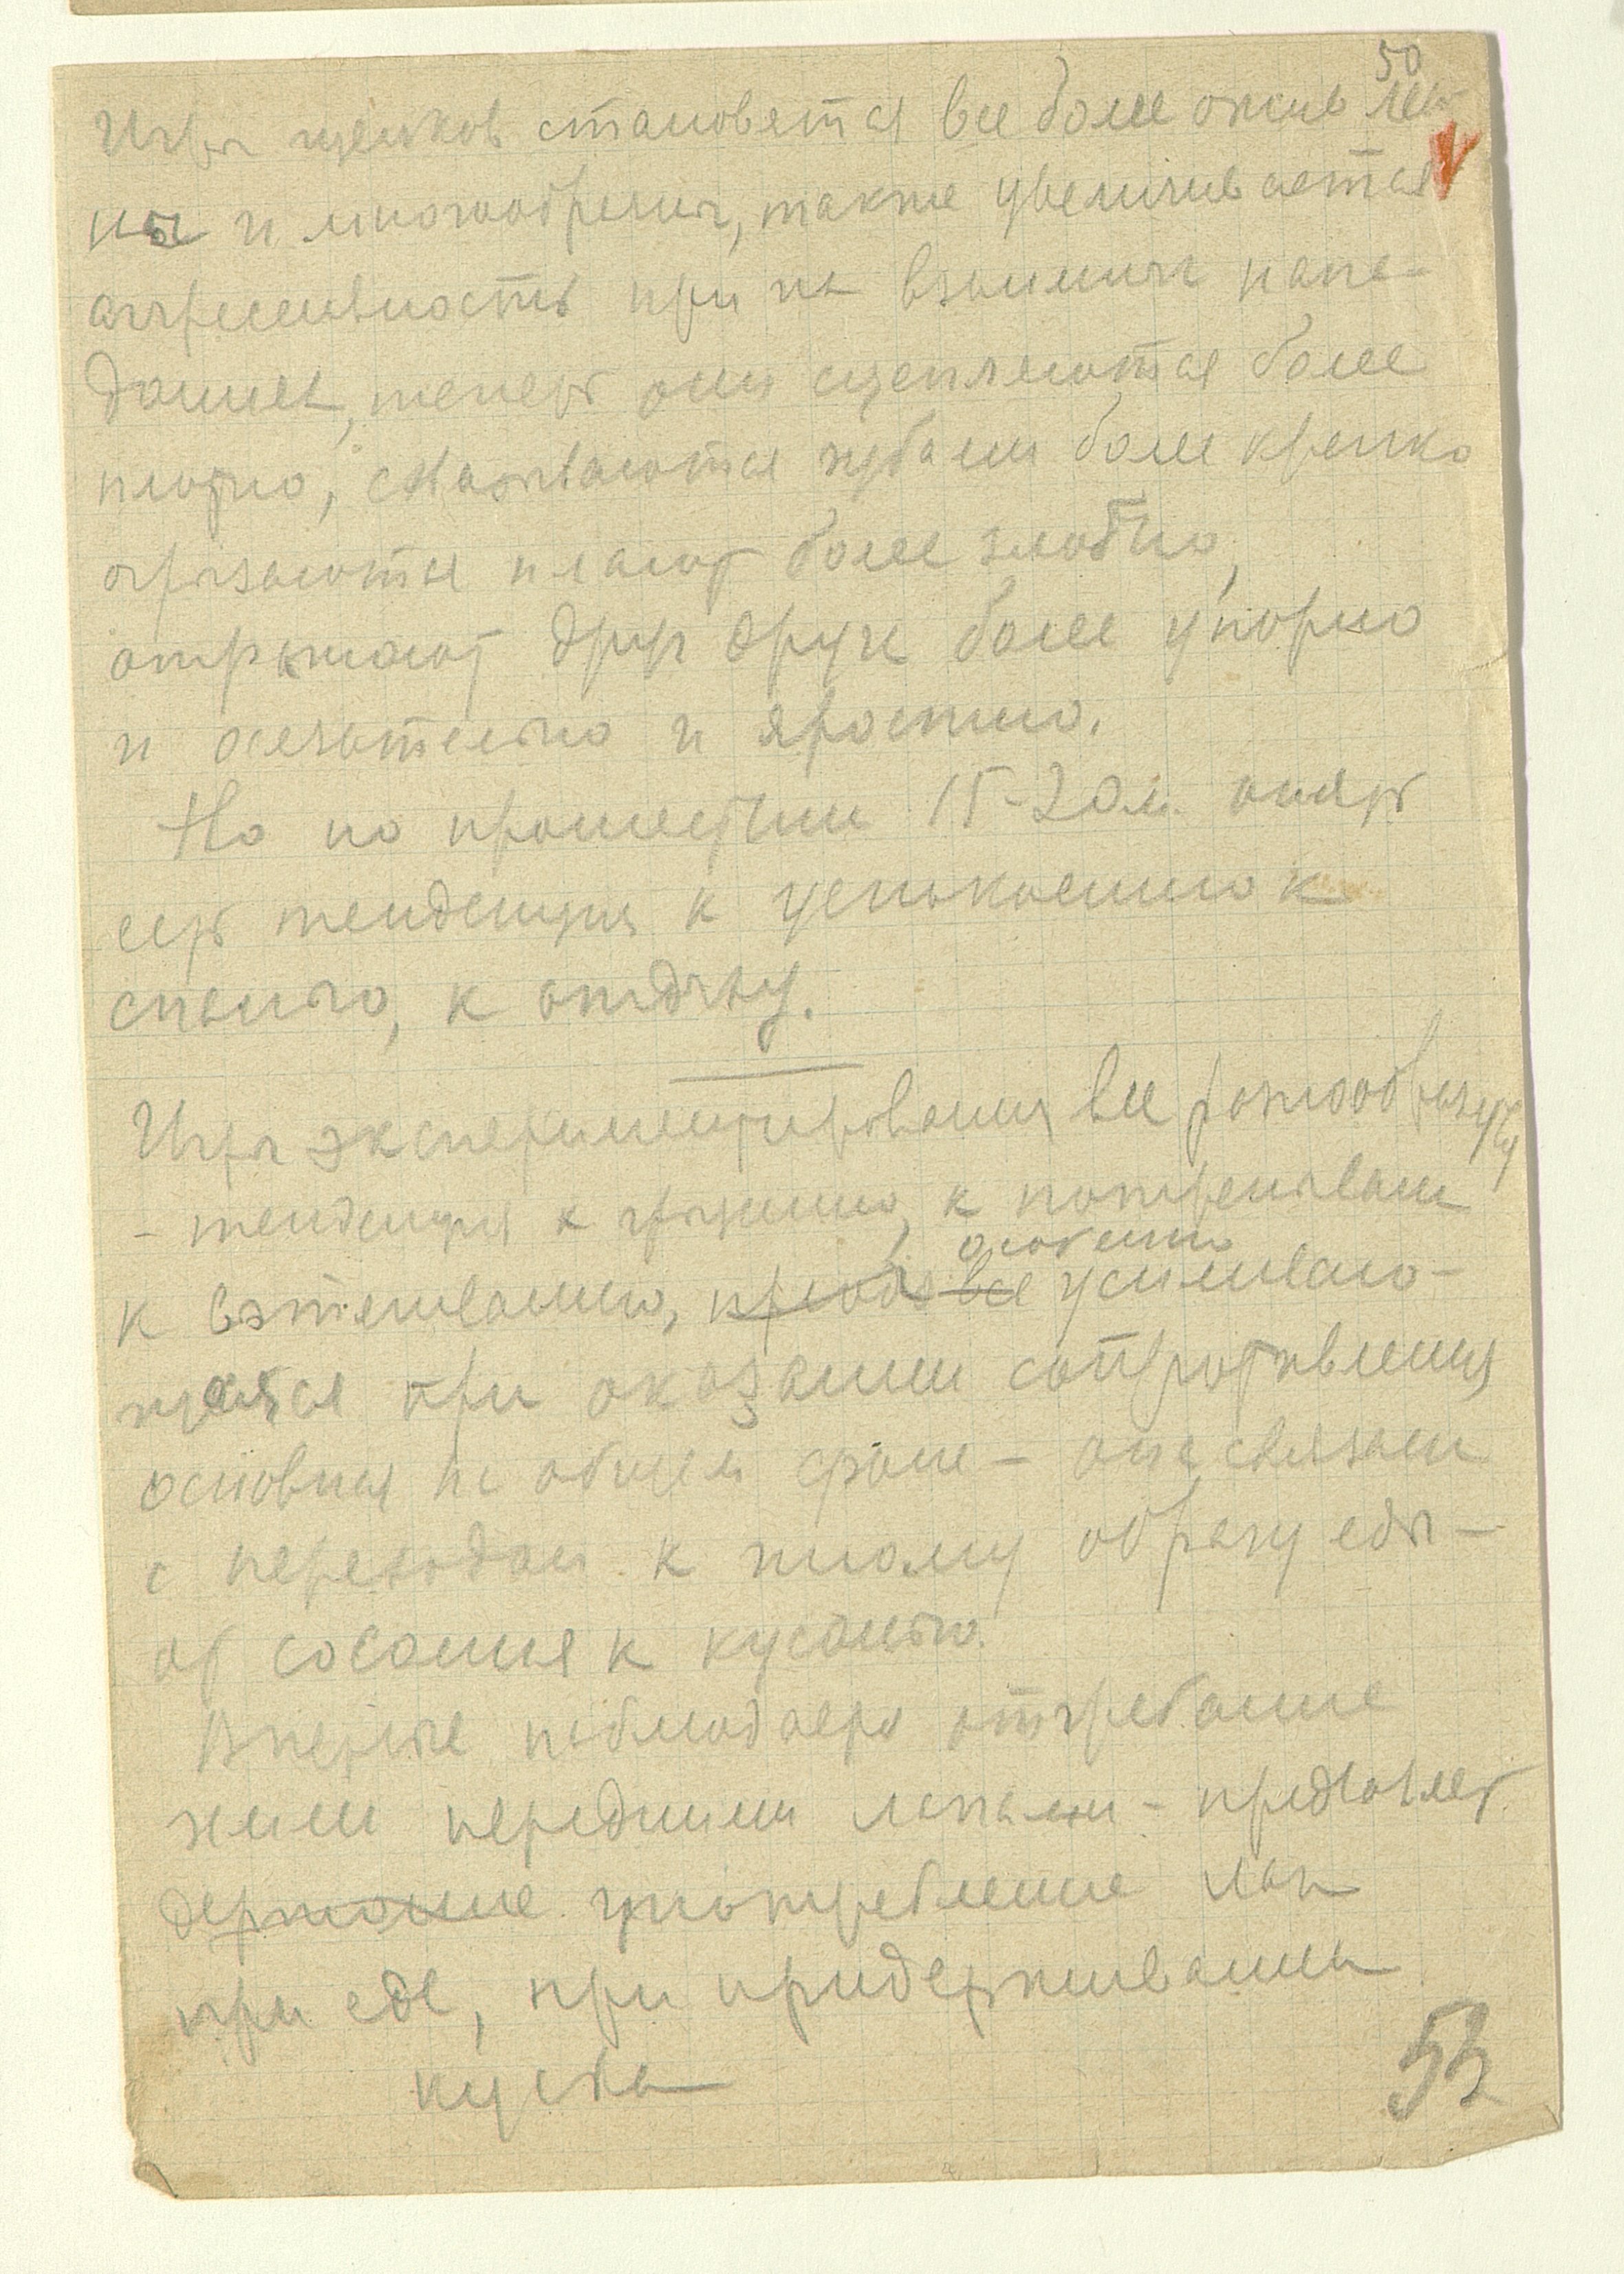 50
Игры щенков становятся все более оживлен-
ны и многообразны, также увеличивается
агрессивность при их взаимных напа-
даниях, теперь они сцепляются более
плотно, схватываются зубами более крепко
огрызаются и лают более злобно,
отражают друг друга более упорно
и осязательно и яростно.
Но по прошествии 15-20 м. опять
есть тенденция к успокоению к
спанью, к отдыху.
Игры экспериментирования все разнообразны
- тенденция к грызению, к потрепыван
к взтягиванию, особенно
все усиливаю-
щаяся при оказании сопротивления
основная на общем фоне - она связана
с переходом к иному образу еды -
от сосания к кусанью.
Впервые наблюдаера отгребание
ними передними лапами - предваряет
держание употребление лап
при еде, при придерживании
куска
53